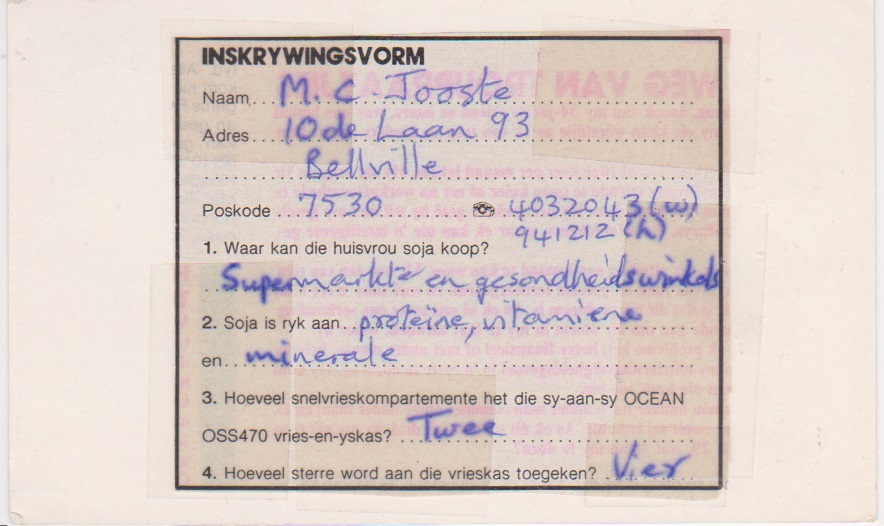 INSKRYWINGSVORM
Naam M. C Jooste
Adres 10de Laan 93
Bellville
Poskode 7530 ☎ 4032043 (w)
941212 (h)
1. Waar kan die huisvrou soja koop?
Supermarkte en gesondheidswinkels
2. Soja is ryk aan proteïne, vitamiene
en minerale
3. Hoeveel snelvrieskompartemente het die sy-aan-sy OCEAN
OSS470 vries-en-yskas? Twee
4. Hoeveel sterre word aan die vrieskas toegeken? Vier